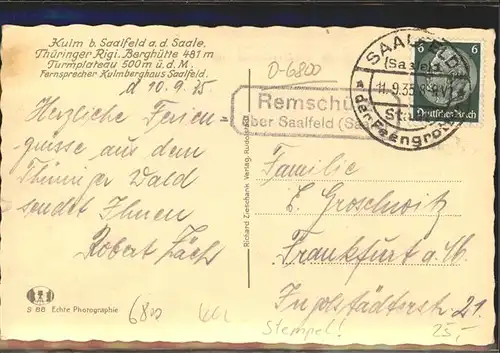 Kulm b. Saalfeld a. d. Saale.
Thüringer Rigi. Berghütte 481 m
Turmplateau 500 m ü. d. M.
Fernsprecher Kulmberghaus Saalfeld.
d 10.9.35
Herzliche Ferien-
grüsse aus dem
Thüringer Wald
sendet Ihnen
Robert
S 88 Echte Photographie
6800
Richard Zieschank Verlag, Rudolstadt
D-6800
Remschü
über Saalfeld (Saa
SAALFELD
(Saale)
11.9.35
St
der Feengro
6 6
Deutsches Reich
Familie
E. Groschwitz
Frankfurt a/M.
Ingolstädterstr. 21.
Stempel!
25,-